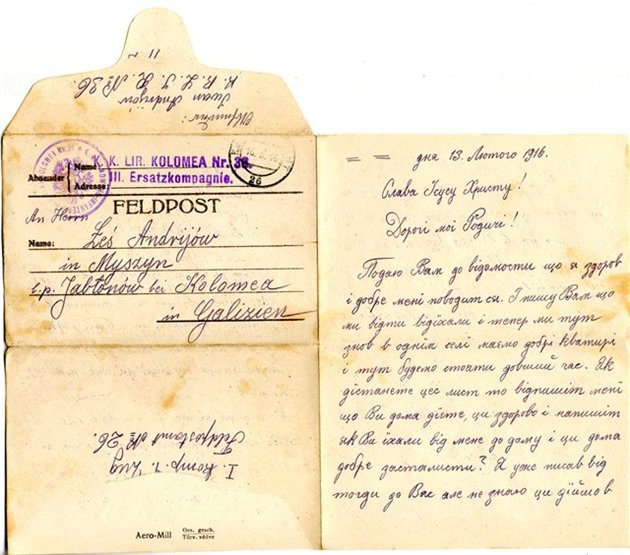 Absender:
Iwan Andrijów
K. K. L. I. R. № 36
Absender
Name:
Adresse:
K. K. LIR. KOLOMEA Nr. 36.
III. Ersatzkompagnie.
26
FELDPOST
An Herrn
Name: Łeś Andrijów
in Myszyn
b.p. Jabłonów bei Kolomea
in Galizien
I. komp. 1. Zug
Feldpostamt № 26.
Aero-Mill
Ges. gesch.
Törv. védve
дня 13. Лютого 1916.
Слава Ісусу Христу!
Дорогі мої Родичі!
Подаю Вам до відомости що я здоров
і добре мені поводит ся. І пишу Вам що
ми відти відїхали і тепер ми тут
знов в однім селі маємо добрі кватирі
і тут будемо стояти довший час. Як
дістанете цес лист то відпишіт мені
що Ви дома дієте, ци здорово і напишіт
як Ви їхали від мене до дому і ци дома
добре засталисти? Я уже писав від
тогди до Вас але не знаю ци дійшов